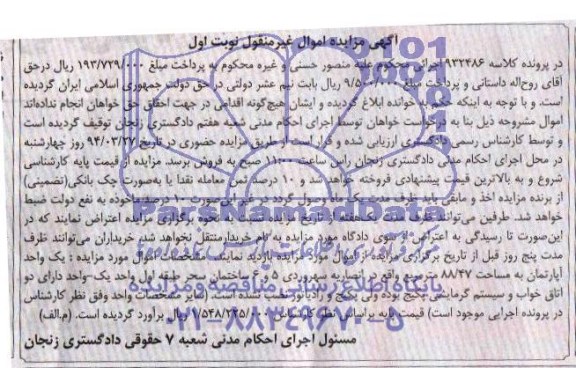 آگهی مزایده اموال غیرمنقول نوبت اول
در پرونده کلاسه ۹۳۲۴۸۶ اجرائی محکوم علیه منصور حسنی و غیره محکوم به پرداخت مبلغ ۱۹۳/۷۲۹/۰۰۰ ریال درحق
آقای روح‌اله داستانی و پرداخت مبلغ ۹/۵۰۰/۰۰۰ ریال بابت نیم عشر دولتی در حق دولت جمهوری اسلامی ایران گردیده
است. و با توجه به اینکه به خوانده ابلاغ گردیده و ایشان هیچ‌گونه اقدامی در جهت احقاق حق خواهان انجام نداده‌اند
اموال مشروحه ذیل بنا به درخواست خواهان توسط اجرای احکام مدنی شعبه هفتم دادگستری زنجان توقیف گردیده است
و توسط کارشناس رسمی دادگستری ارزیابی شده و قرار است از طریق مزایده حضوری در تاریخ ۹۴/۰۳/۲۷ روز چهارشنبه
در محل اجرای احکام مدنی دادگستری زنجان راس ساعت ۱۱:۰۰ صبح به فروش برسد. مزایده از قیمت پایه کارشناسی
شروع و به بالاترین قیمت پیشنهادی فروخته خواهد شد و ۱۰ درصد ثمن معامله نقدا یا به‌صورت چک بانکی(تضمینی)
از برنده مزایده اخذ و مابقی باید ظرف مدت یک ماه وصول گردد در غیر این صورت ۱۰ درصد ماخوذه به نفع دولت ضبط
خواهد شد. طرفین می‌توانند ظرف مدت یک‌هفته از تاریخ مزایده نسبت به نحوه برگزاری مزایده اعتراض نمایند که در
این‌صورت تا رسیدگی به اعتراض از سوی دادگاه مورد مزایده به نام خریدارمنتقل نخواهد شد. خریداران می‌توانند ظرف
مدت پنج روز قبل از تاریخ برگزاری مزایده از اموال مورد مزایده بازدید نمایند. مشخصات اموال مورد مزایده : یک واحد
آپارتمان به مساحت ۸۸/۴۷ مترمربع واقع در انصاریه سهروردی ۵ و ۶ ساختمان سحر طبقه اول واحد یک-واحد دارای دو
اتاق خواب و سیستم گرمایشی پکیج بوده ولی پکیج و رادیاتور نصب نشده است. (سایر مشخصات واحد وفق نظر کارشناس
در پرونده اجرایی موجود است) قیمت پایه براساس نظر کارشناس ۱/۵۴۸/۲۲۵/۰۰۰ ریال برآورد گردیده است. (م.الف)
مسئول اجرای احکام مدنی شعبه ۷ حقوقی دادگستری زنجان
ParsNamadData
پایگاه اطلاع رسانی مناقصه و مزایده
۰۲۱-۸۸۳۴۹۶۷۰-۵